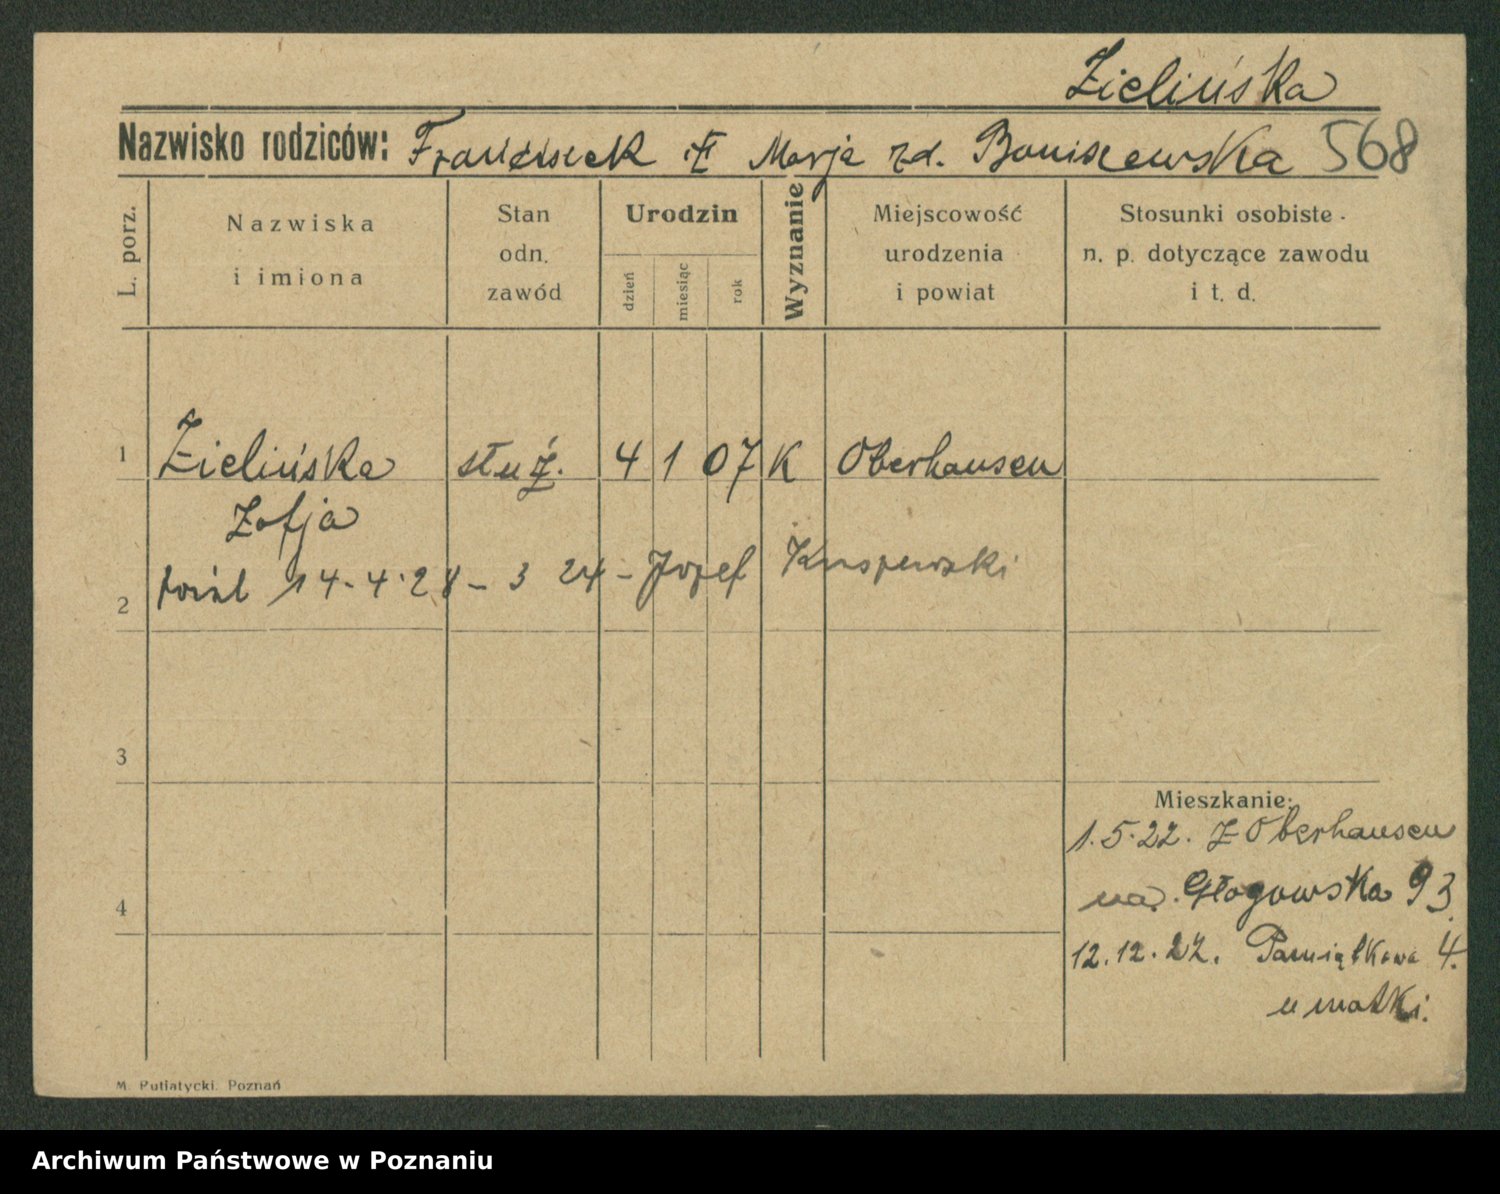 Zielińska
Nazwisko rodziców: Franciszek i Marja zd. Baniszewska 568
L. porz.
Nazwiska
i imiona
Stan
odn.
zawód
Urodzin
dzień
miesiąc
rok
Wyznanie
Miejscowość
urodzenia
i powiat
Stosunki osobiste
n. p. dotyczące zawodu
i t. d.
1 Zielińska służ. 4 1 07 K Oberhausen
Zofja
2 14-4-28 - 3 24 - Józef
3
Mieszkanie:
1.5.22. z Oberhausen
na. Głogowska 93.
4
12.12.27. Pamiątkowa 4.
u matki.
M. Putiatycki. Poznań
Archiwum Państwowe w Poznaniu